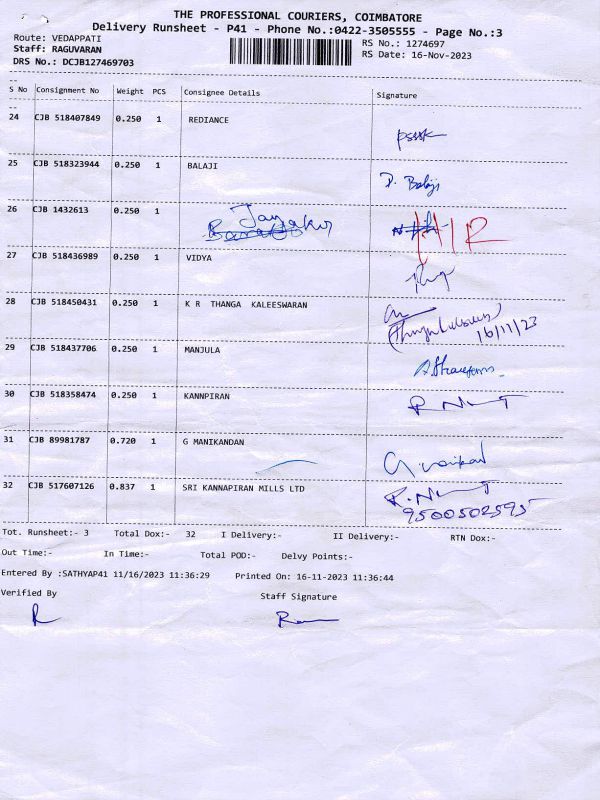 THE PROFESSIONAL COURIERS, COIMBATORE
Delivery Runsheet - P41 - Phone No.:0422-3505555 - Page No.:3
Route: VEDAPPATI
RS No.: 1274697
Staff: RAGUVARAN
RS Date: 16-Nov-2023
DRS No.: DCJB127469703
S No Consignment No Weight PCS Consignee Details Signature
24 CJB 518407849 0.250 1 REDIANCE
25 CJB 518323944 0.250 1 BALAJI D. Balaji
26 CJB 1432613 0.250 1
27 CJB 518436989 0.250 1 VIDYA
28 CJB 518450431 0.250 1 K R THANGA KALEESWARAN
16/11/23
29 CJB 518437706 0.250 1 MANJULA
30 CJB 518358474 0.250 1 KANNPIRAN
31 CJB 89981787 0.720 1 G MANIKANDAN
32 CJB 517607126 0.837 1 SRI KANNAPIRAN MILLS LTD
9500502595
Tot. Runsheet:- 3 Total Dox:- 32 I Delivery:- II Delivery:- RTN Dox:-
Out Time:- In Time:- Total POD:- Delvy Points:-
Entered By :SATHYAP41 11/16/2023 11:36:29 Printed On: 16-11-2023 11:36:44
Verified By Staff Signature